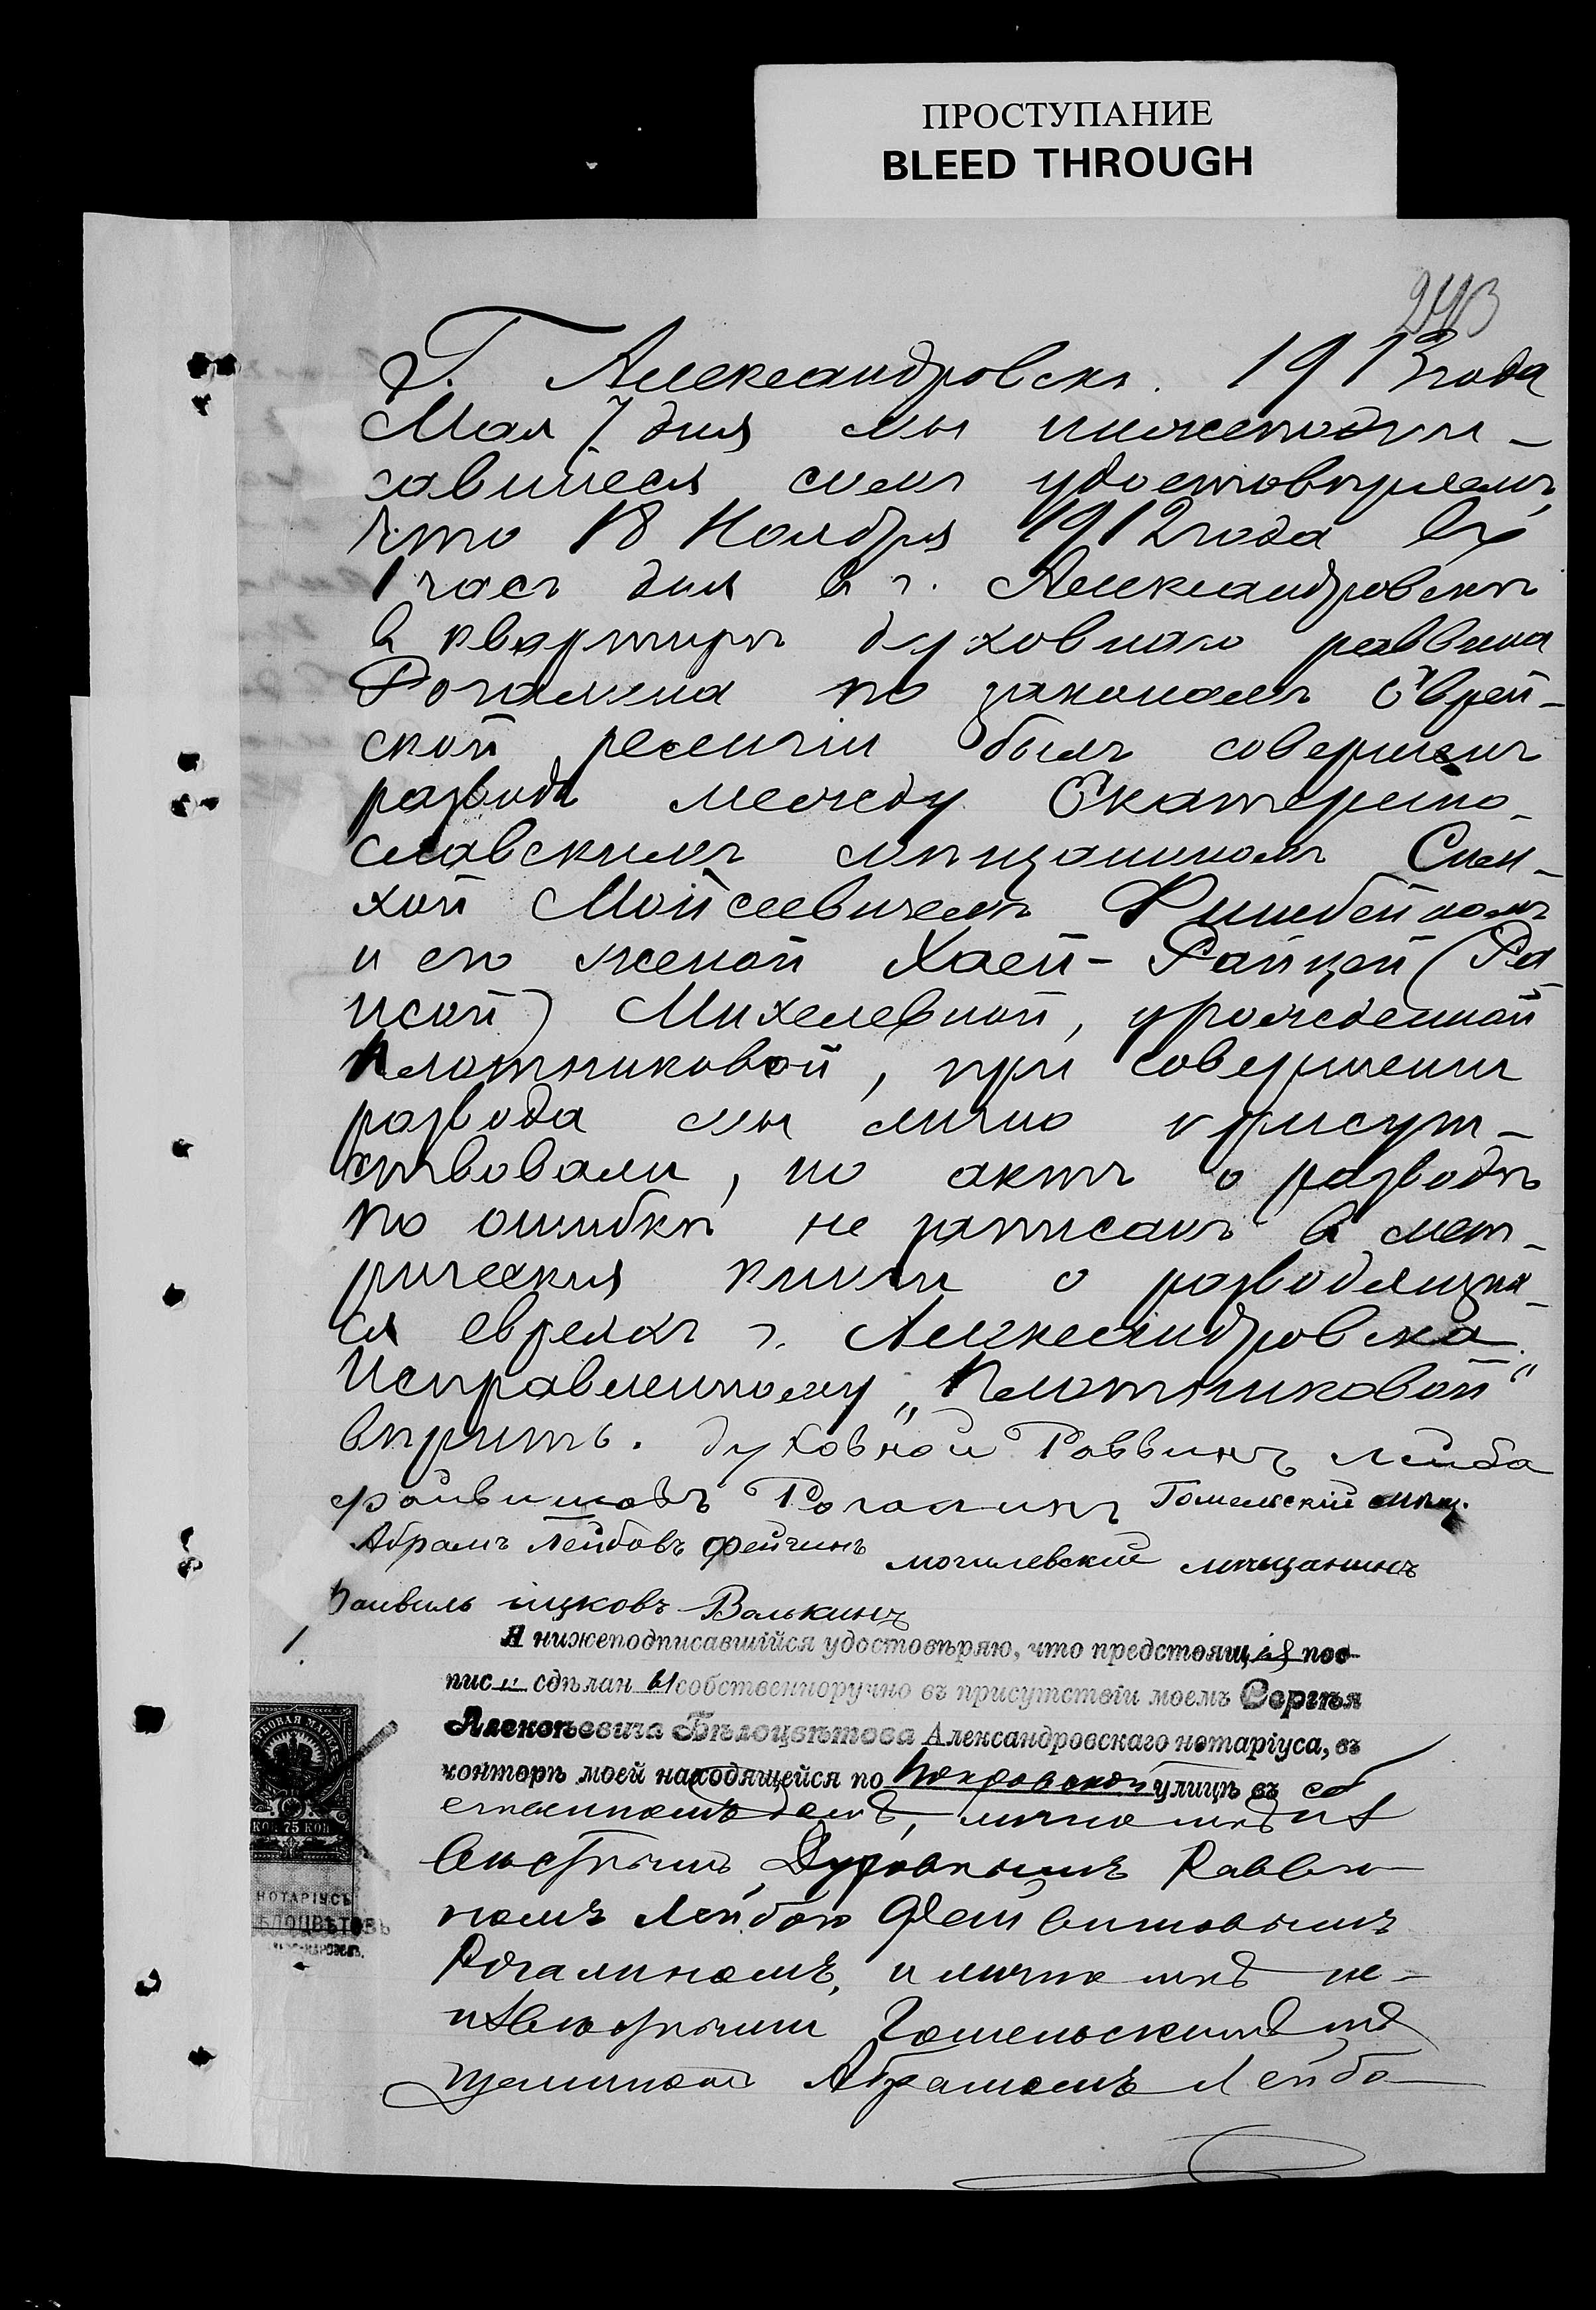 ПРОСТУПАНИЕ
BLEED THROUGH
293
Г. Александровскъ. 1913 года
Мая 7 дня мы нижеподпи-
савшіеся симъ удостовѣряемъ,
что 18 Ноября 1912 года въ
1 часъ дня въ г. Александровскѣ
въ квартирѣ духовнаго раввина
Рогалина по законамъ Еврей-
ской религіи былъ совершенъ
разводъ между Екатерино-
славскимъ мѣщаниномъ Сим-
хой Мойсеевичемъ Фишбейномъ
и его женой Хаей-Райцей (Ра-
исой) Михелевной, урожденной
Плотниковой, при совершеніи
развода мы лично присут-
ствовали, но актъ о разводѣ
по ошибкѣ не записанъ въ мет-
рическія книги о разводящих-
ся евреяхъ г. Александровска.
Исправленному „Плотниковой“
вѣрить. Духовной Раввинъ Лейба
Файвишовъ Рогалинъ Гомельскій мѣщ.
Абрамъ Лейбовъ Фейгинъ могилевскій мѣщанинъ
Ицковъ Валькинъ
Я нижеподписавшійся удостовѣряю, что предстоящія под-
писи сдѣланы собственноручно въ присутствіи моемъ Сергѣя
Алексѣевича Бѣлоцвѣтова Александровскаго нотаріуса, въ
конторѣ моей находящейся по Покровской улицѣ въ соб
ственномъ домѣ, лично мнѣ из
вѣстнымъ Духовнымъ Равви
номъ Лейбою Файвишовымъ
Рогалинымъ, и лично мнѣ не-
извѣстными Гомельскимъ мѣ
щаниномъ Абрамомъ Лейбо
ГЕРБОВАЯ МАРКА
75 КОП
НОТАРІУСЪ
БѢЛОЦВѢТОВЪ